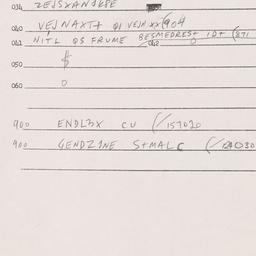 034 ZEJSXANJKPE
040 VEJNAXT+ QI VEJN XX (904
042 NITL QS FRUME BESMEDREST IDT (871
042
050 $
060 0
900 ENDLBX CU (/157020
900 GENDZINE S+MALC (/